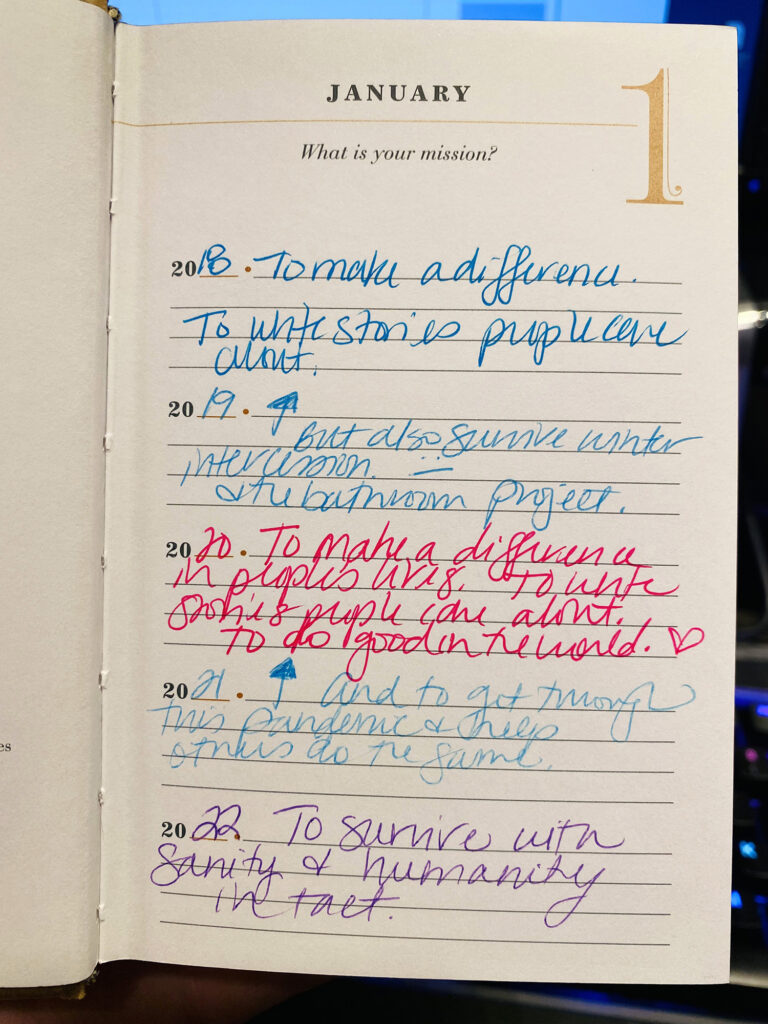 JANUARY
1
What is your mission?
2018. To make a difference.
To write stories people care
about.
2019. ↑
But also survive winter
intercession.
& the bathroom project.
2020. To make a difference
in people's lives. To write
stories people care about.
To do good in the world. ♡
2021. ↑ And to get through
this pandemic & help
others do the same.
2022. To survive with
sanity & humanity
in tact.
es